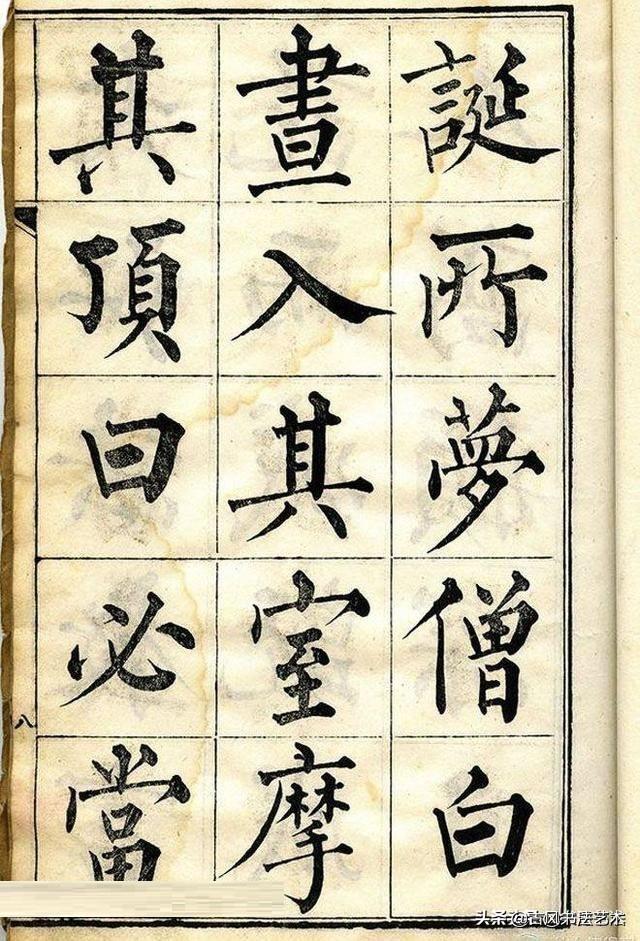 誕所夢僧白
晝入其室摩
其頂曰必當
八
头条@古风书法艺术